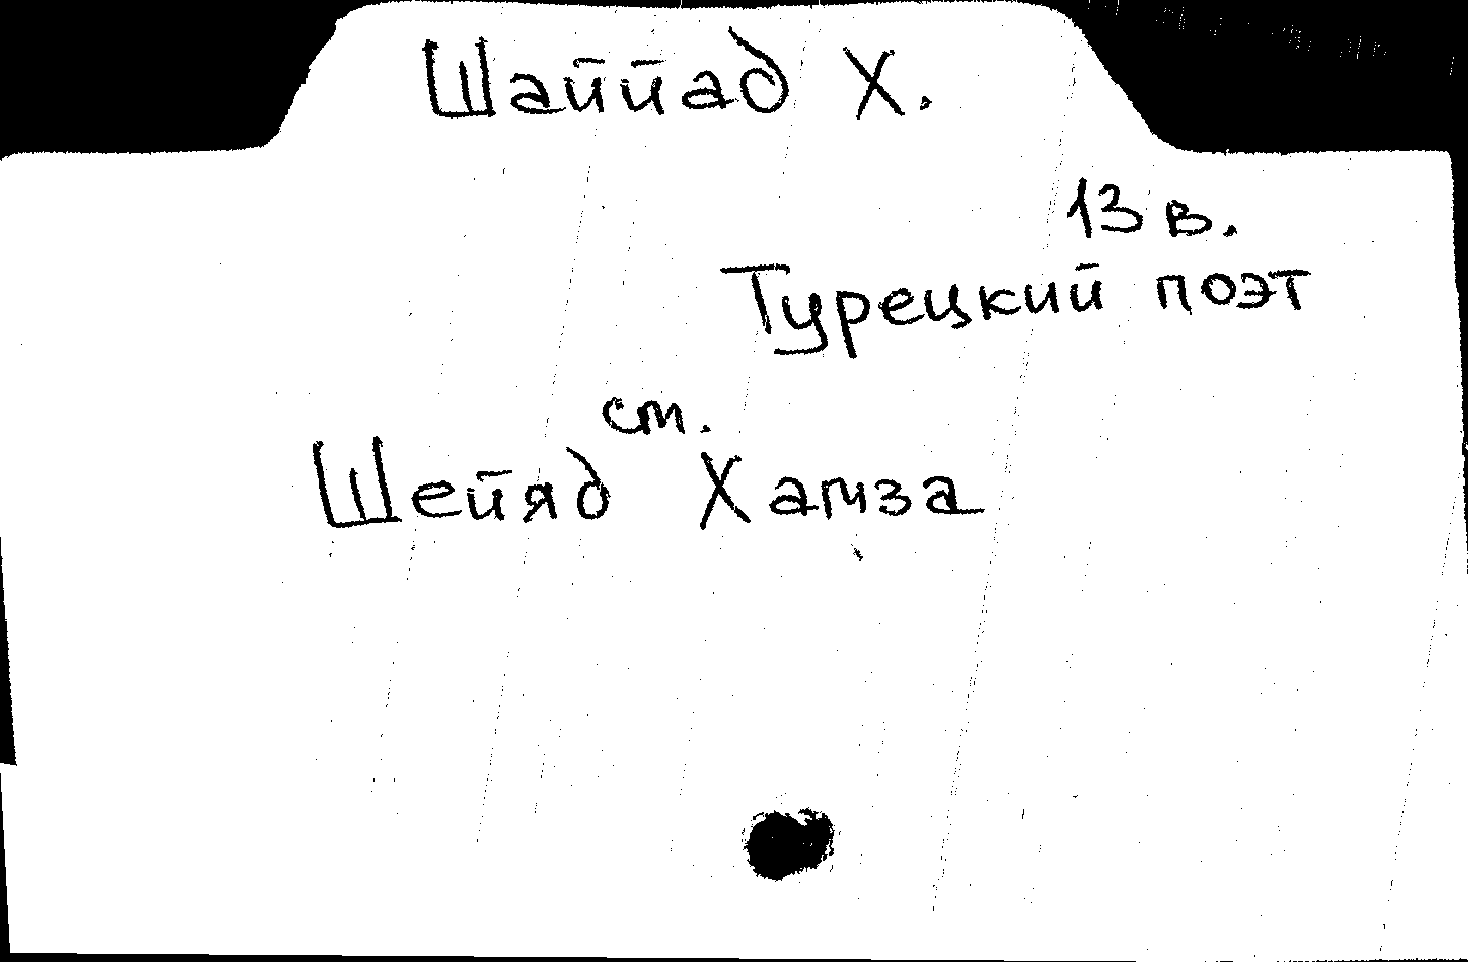 Шаййад Х.
13 в.
Турецкий поэт
ст.
Шейяд Хамза